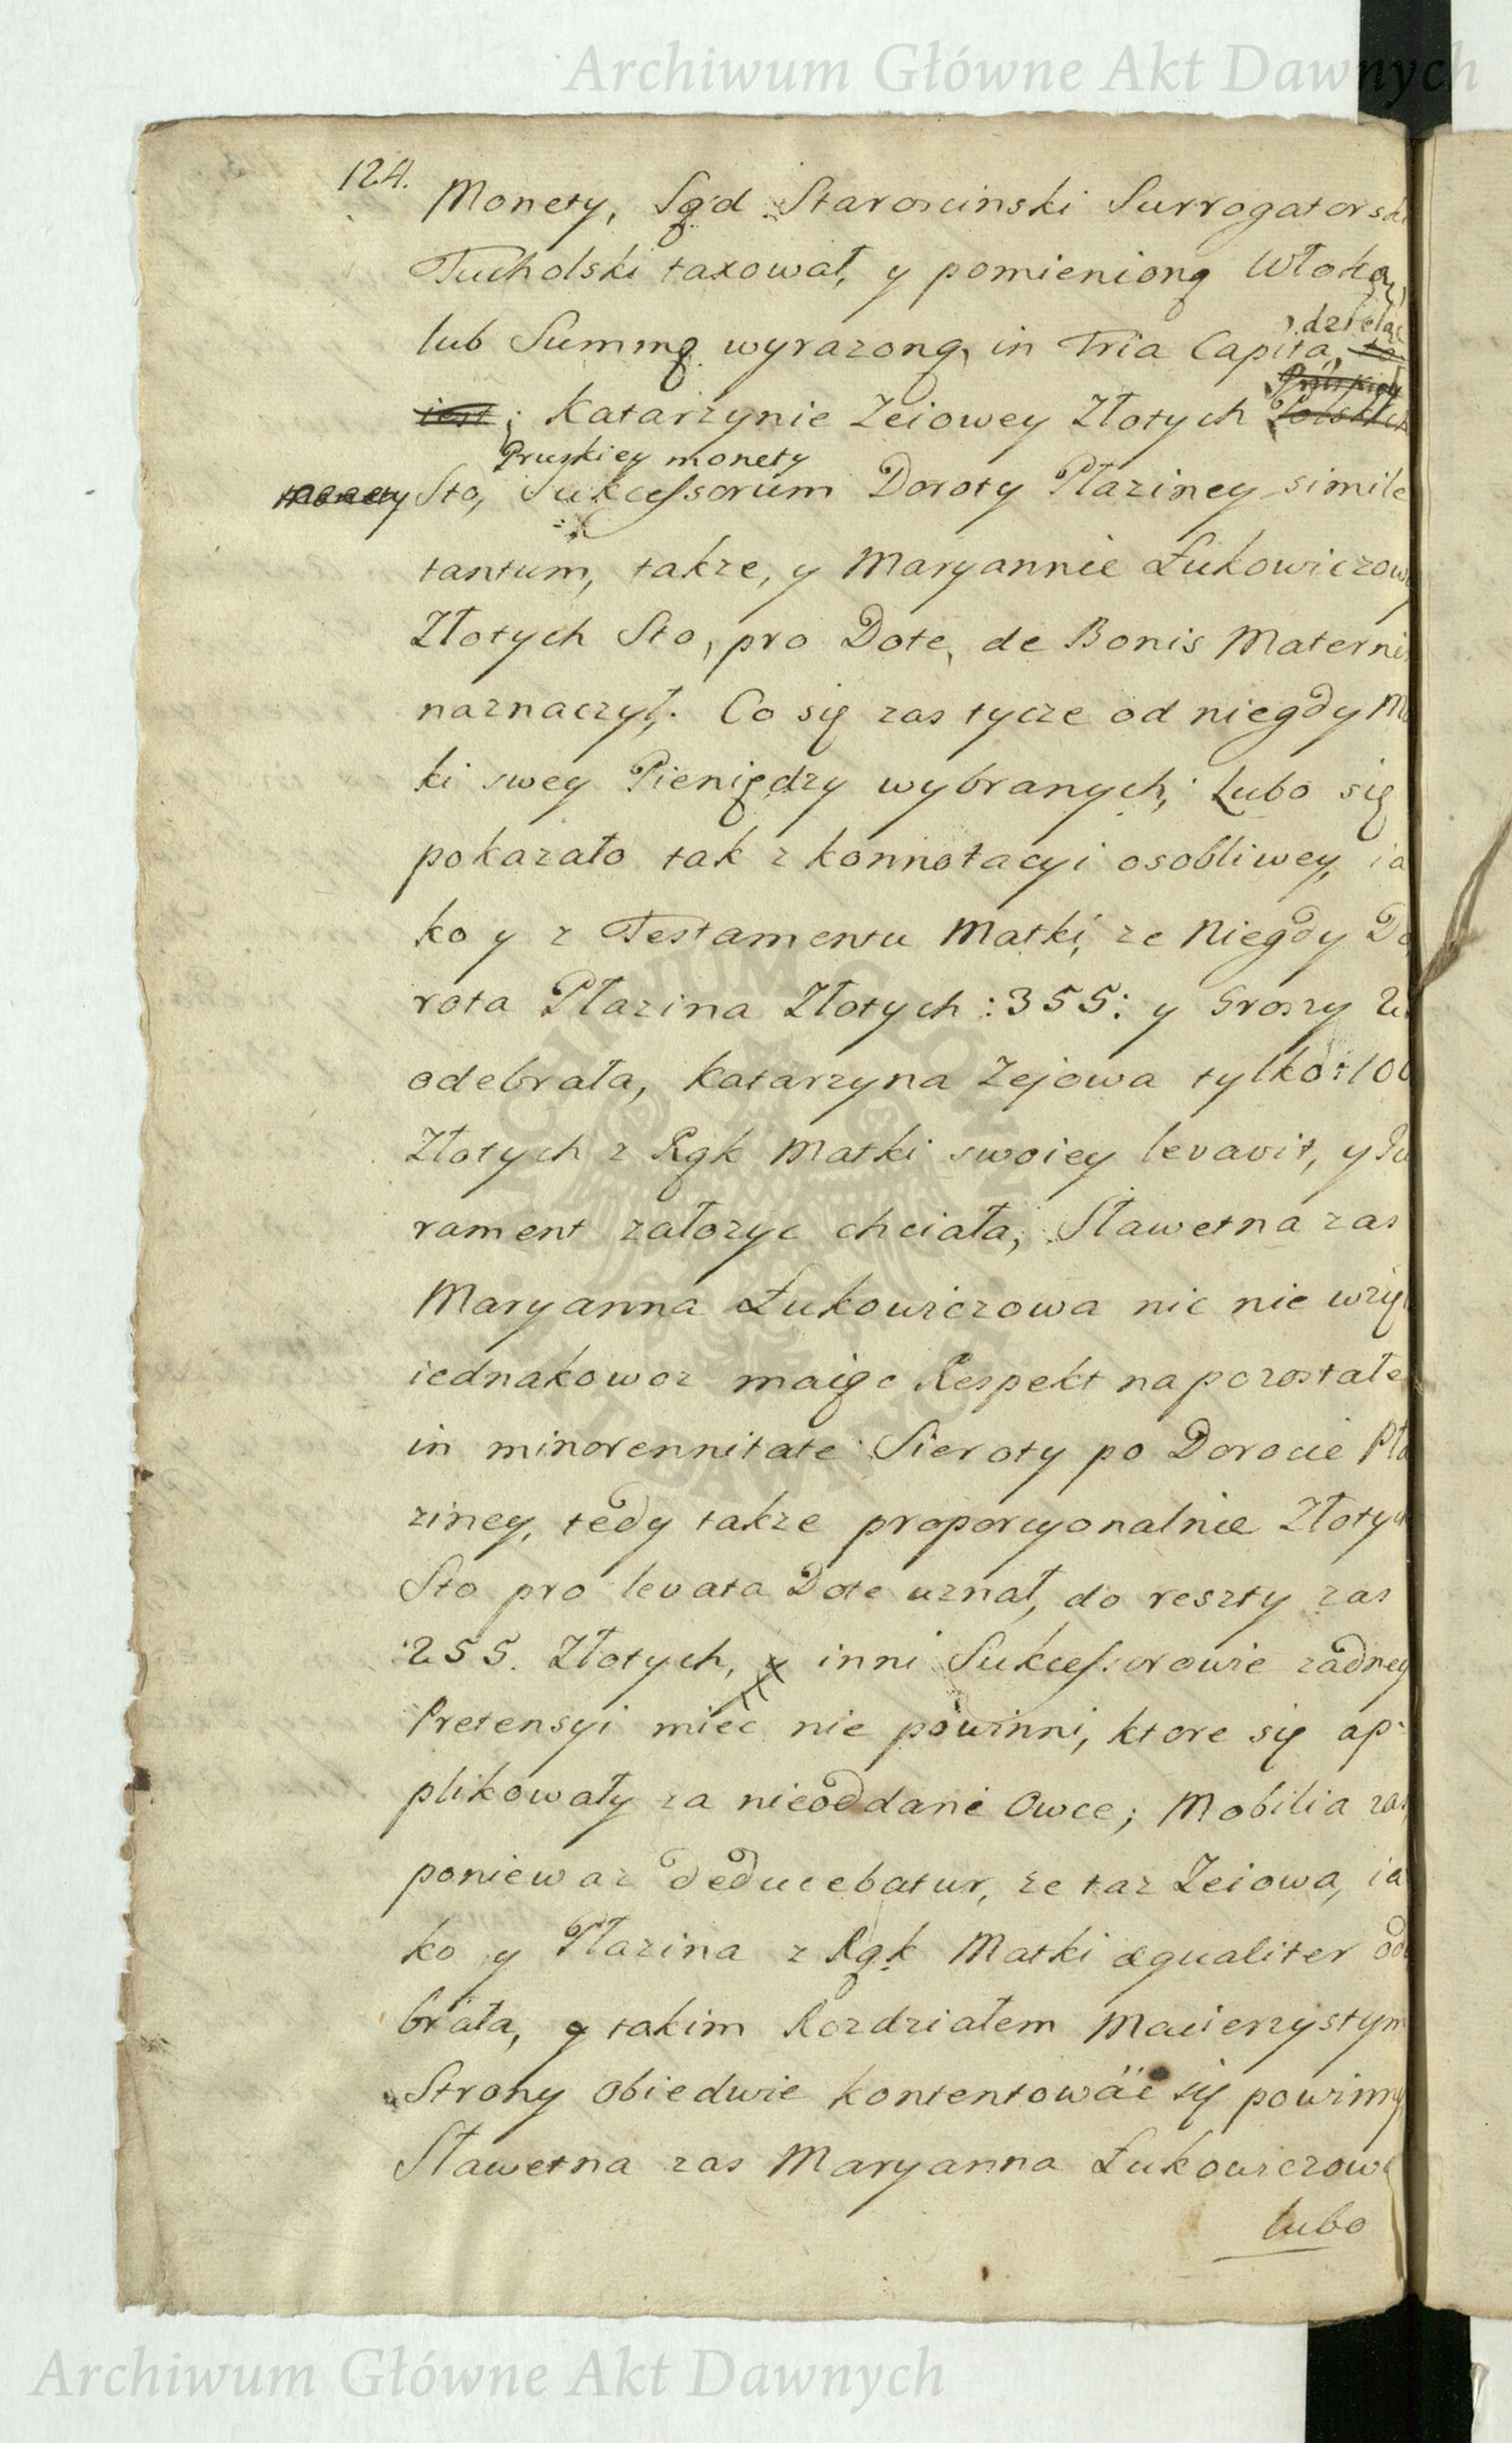 Archiwum Główne Akt Dawnych
124.
Monety, Sąd Staroscinski Surrogatorski
Tucholski taxował, y pomienioną Włokę,
dzieląc
lub Summę wyrazoną, in Tria Capita, to
Pruskiey
iest; Katarzynie Zeiowey Złotych Polskich
Pruskiey monety
monety Sto, Sukcessorum Doroty Płaziney simile
tantum, takze, y Maryannie Łukowiczow
Złotych Sto, pro Dote, de Bonis Materni
naznaczył. Co się zas tycze od niegdy Ma
ki swey Pieniędzy wybranych; Lubo się
pokazało tak z konnotacyi osobliwey, ia
ko y z Testamentu Matki, ze Niegdy Do
rota Płazina Złotych :355: y Groszy 2
odebrała, Katarzyna Zejowa tylko :100
Złotych z Rąk Matki swoiey levavit, y Ju
rament załozyc chciała, Sławetna zas
Maryanna Łukowiczowa nic nie wzię
iednakowoz maiąc Respekt na pozostałe
in minorennitate Sieroty po Dorocie Pła
ziney, tedy takze proporcyonalnie Złotych
Sto pro levata Dote uznał, do reszty zas
:255. Złotych, y inni Sukcessorowie zadney
Pretensyi miec nie powinni, ktore się ap-
plikowały za nieoddane Owce; Mobilia zas
poniewaz deducebatur, ze taz Zeiowa, ia
ko y Płazina z Rąk Matki æqualiter ode
brała, y takim Rozdziałem Macierzystym
Strony obiedwie kontentowäc się powinny
Sławetna zas Maryanna Łukowiczowa
lubo
Archiwum Główne Akt Dawnych